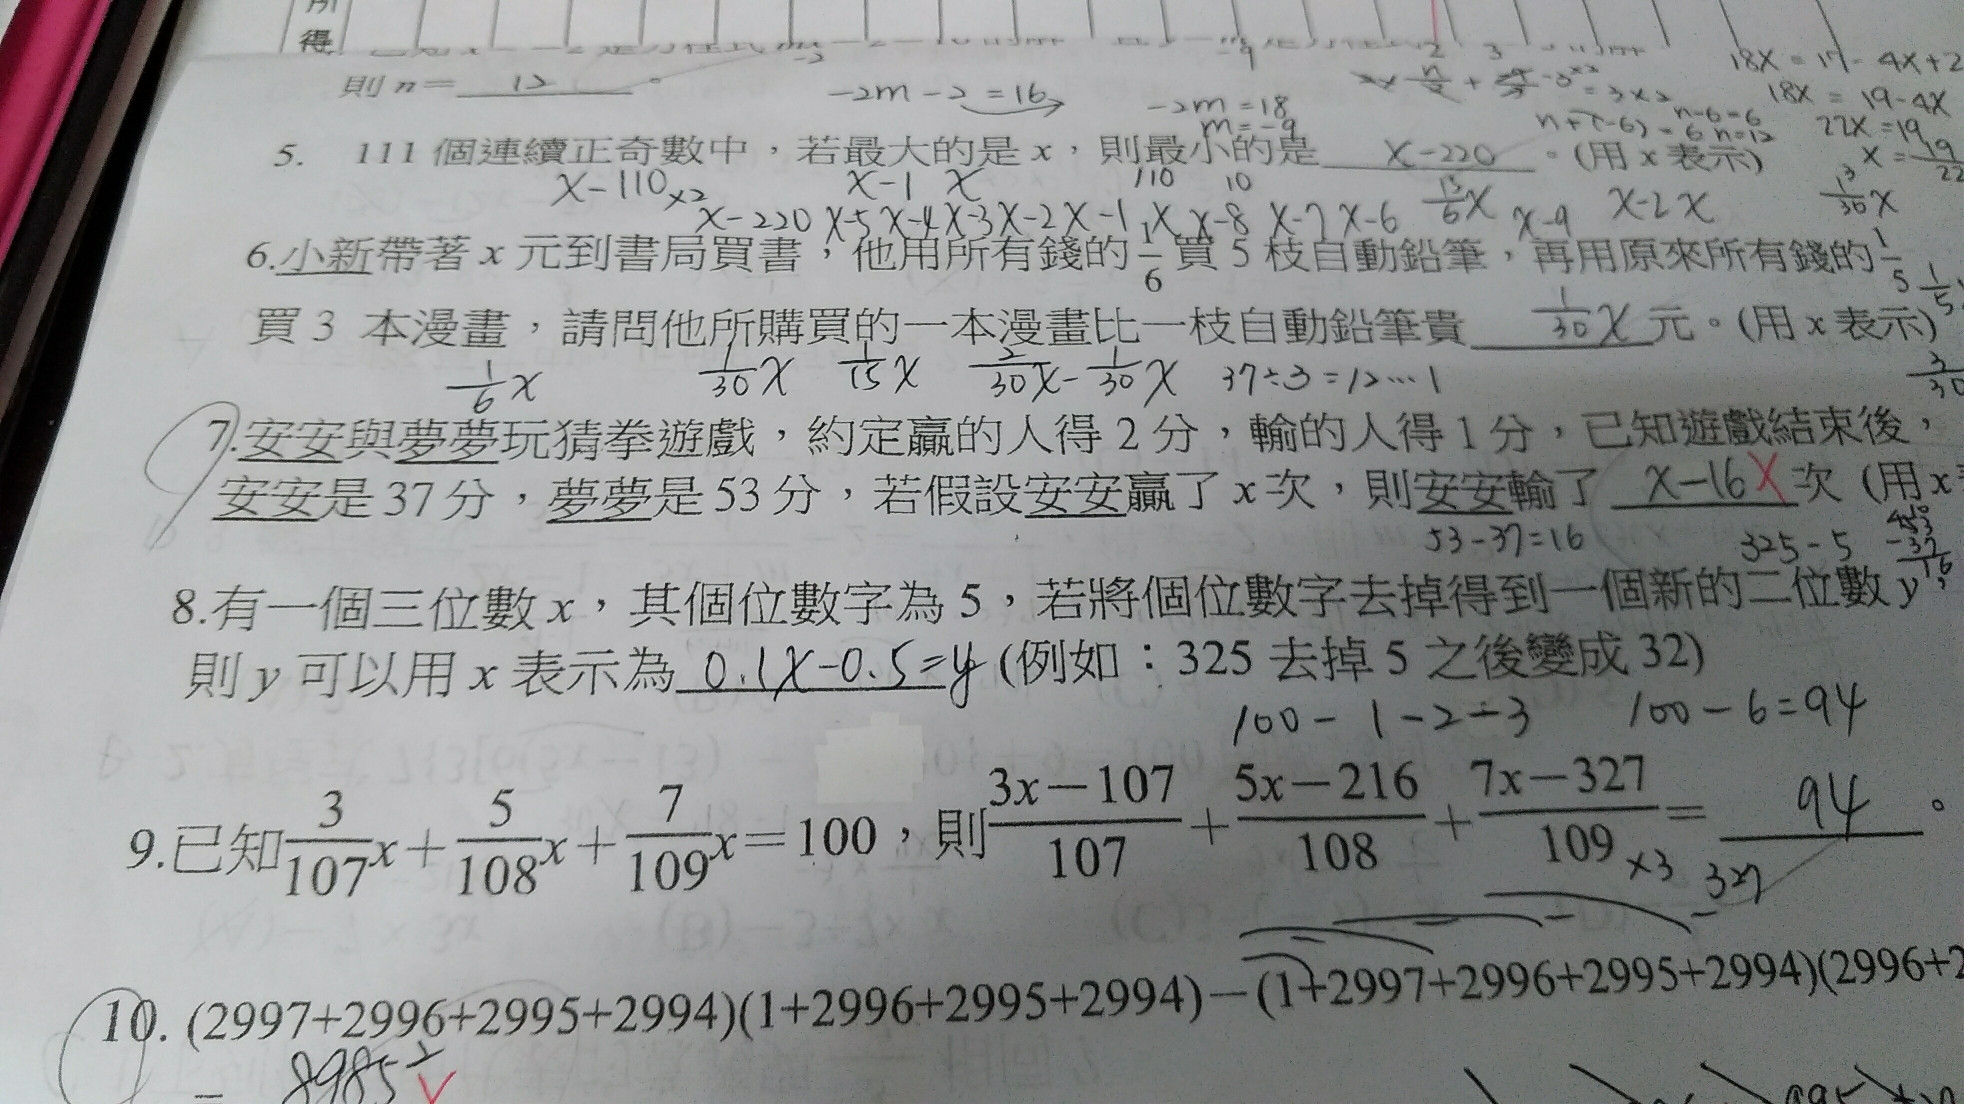 所
得
則 n = 12 。
-2m-2=16
-2m=18
m=-9
n-6=6
n+(-6)=6 n=12
18X=17-4X+2
18X=19-4X
22X=19
X=19/22
5. 111 個連續正奇數中，若最大的是 x，則最小的是 X-220 。(用 x 表示)
X-110 ×2 X-1 X 110 10 13/6X X-2 X 13/30X
X-220 X-5 X-4 X-3 X-2 X-1 X X-8 X-7 X-6 X-9
6.小新帶著 x 元到書局買書，他用所有錢的 1/6 買 5 枝自動鉛筆，再用原來所有錢的 1/5
買 3 本漫畫，請問他所購買的一本漫畫比一枝自動鉛筆貴 1/30X 元。(用 x 表示)
1/6X 1/30X 1/15X 2/30X-1/30X 37÷3=12…1
7.安安與夢夢玩猜拳遊戲，約定贏的人得 2 分，輸的人得 1 分，已知遊戲結束後，
安安是 37 分，夢夢是 53 分，若假設安安贏了 x 次，則安安輸了 X-16 次 (用 x
53-37=16 325-5 53 -37 16
8.有一個三位數 x，其個位數字為 5，若將個位數字去掉得到一個新的二位數 y，
則 y 可以用 x 表示為 0.1X-0.5=y (例如：325 去掉 5 之後變成 32)
100-1-2-3 100-6=94
9.已知 3/107 x + 5/108 x + 7/109 x = 100，則 3x－107/107 + 5x－216/108 + 7x－327/109 = 94 。
×3 327
10. (2997+2996+2995+2994)(1+2996+2995+2994)－(1+2997+2996+2995+2994)(2996+2
= 8985²